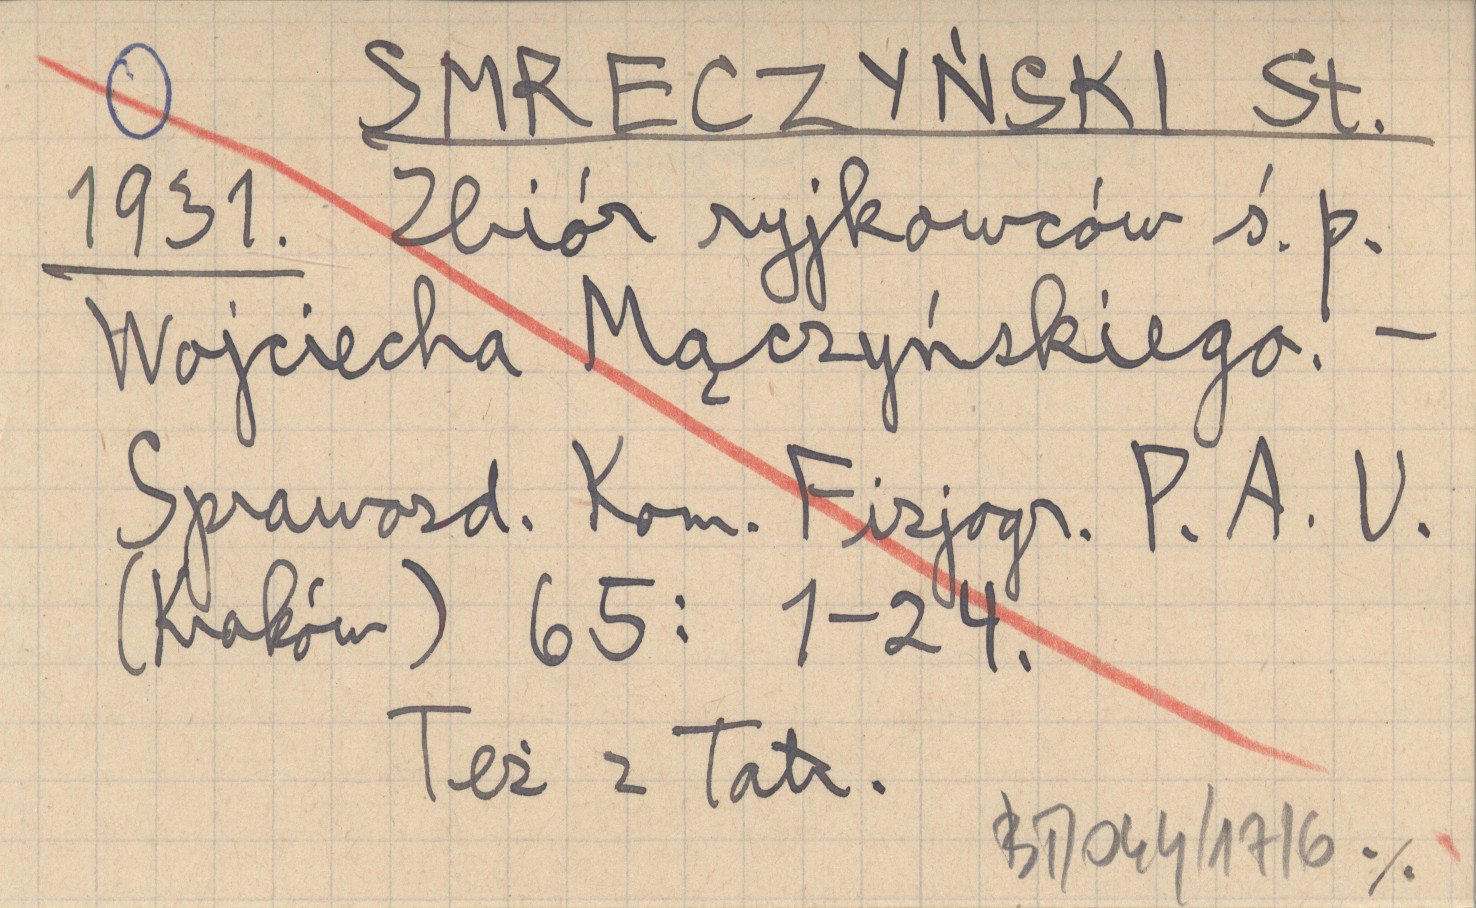 SMRECZYŃSKI St.
1931. Zbiór ryjkowców ś. p.
Wojciecha Mączyńskiego. –
Sprawozd. Kom. Fizjogr. P. A. U.
(Kraków) 65: 1–24.
Też z Tatr.
BT/044/1716 ./.